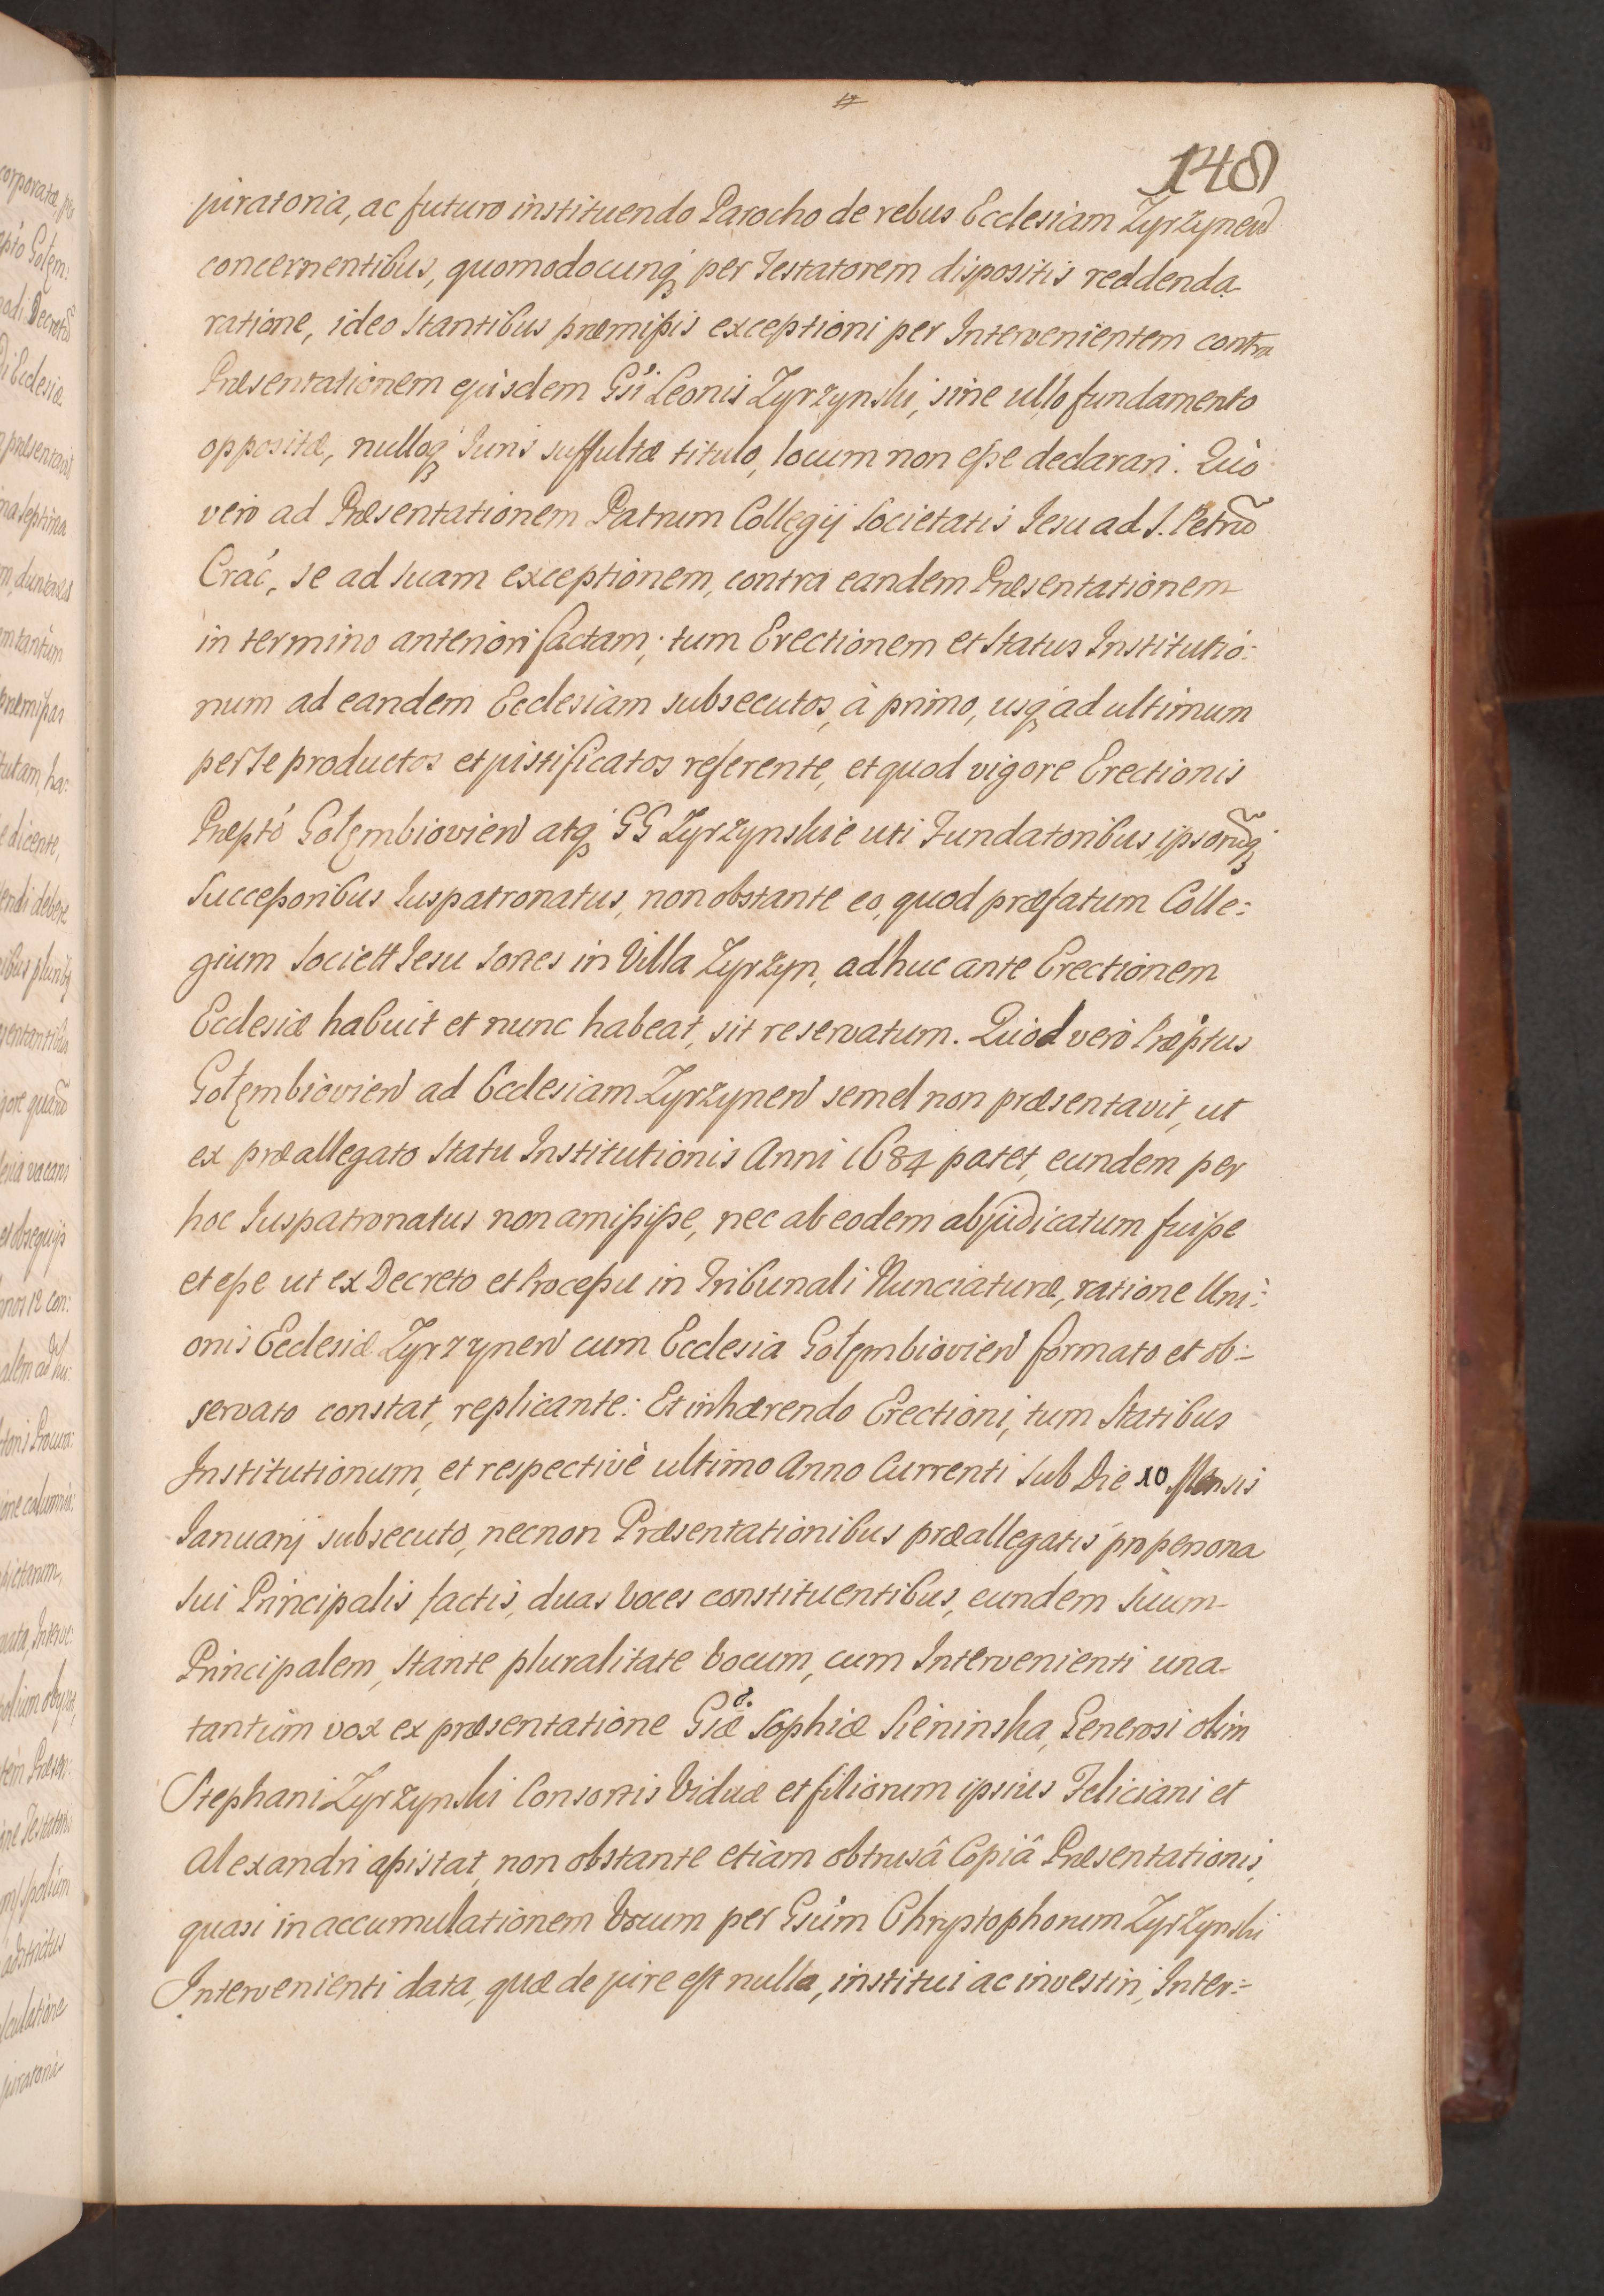 148
juratoria, ac futuro instituendo Parocho de rebus Ecclesiam Zyrzynen
concernentibus, quomodocunq per Testatorem dispositis reddenda
ratione, ideo stantibus præmißis exceptioni per Intervenientem contra
Præsentationem ejusdem Gsi Leonis Zyrzynski, sine ullo fundamento
oppositæ, nulloq Juris suffultæ titulo, locum non eße declarari. Quò
verò ad Præsentationem Patrum Collegij Societatis Jesu ad S. Petrũ
Crać, se ad suam exceptionem, contra eandem Præsentationem
in termino anteriori factam; tum Erectionem et Status Institutio:
num ad eandem Ecclesiam subsecutos, à primo, usq ad ultimum
per se productos et justificatos referente, et quod vigore Erectionis
Præpto Gołęmbiovien atq GG Zyrzynskie uti Fundatoribus, ipsorũq
Succeßoribus Juspatronatus, non obstante eo, quod præfatum Colle:
gium Societt Jesu Sortes in Villa Zyrzyn, adhuc ante Erectionem
Ecclesiæ habuit et nunc habeat, sit reservatum. Quod verò Præptus
Gołęmbiovien ad Ecclesiam Zyrzynen semel non præsentavit, ut
ex præallegato Statu Institutionis Anni 1684 patet, eundem per
hoc Juspatronatus non amißiße, nec ab eodem abjudicatum fuiße
et eße ut ex Decreto et Proceßu in Tribunali Nunciaturæ, ratione Uni:
onis Ecclesiæ Zyrzynen cum Ecclesia Gołęmbiovien formato et ob:
servato constat, replicante: Et inhærendo Erectioni, tum Statibus
Institutionum, et respectivè ultimo Anno Currenti sub Die 10 Mensis
Januarij subsecuto, necnon Præsentationibus præallegatis pro persona
sui Principalis factis, duas voces constituentibus, eundem suum
Principalem, stante pluralitate vocum, cum Intervenienti una
tantùm vox ex præsentatione Gsæ Sophiæ Sieninska, Generosi olim
Stephani Zyrzynski Consortis Viduæ et filiorum ipsius Feliciani et
Alexandri aßistat, non obstante etiam obtrusâ Copiâ Præsentationis,
quasi in accumulationem Vocum per Gsum Chryptophorum Zyrzynski
Intervenienti data, quæ de jure est nulla, institui ac investiri, Inter: